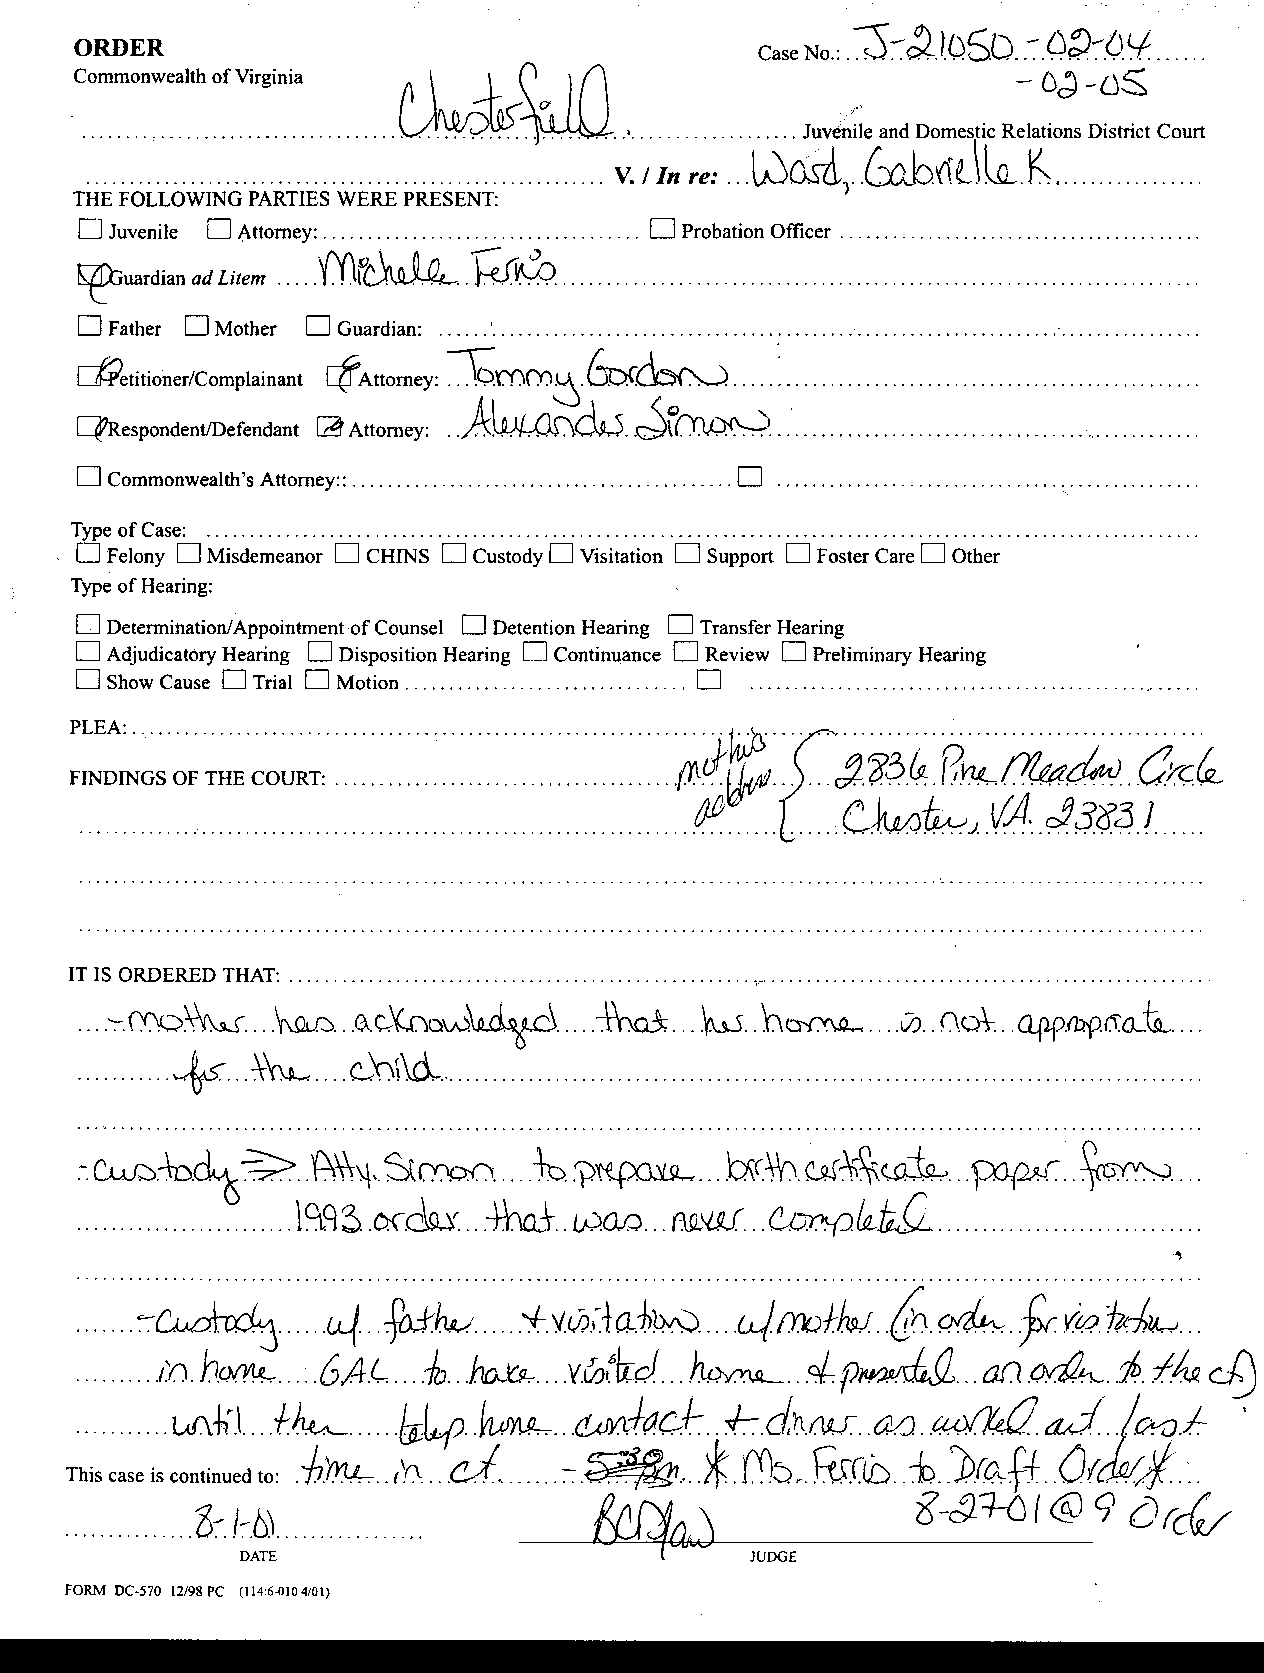 ORDER
Case No.: J-21050-02-04
Commonwealth of Virginia
-02-05
Chesterfield Juvenile and Domestic Relations District Court
V. / In re: Ward, Gabrielle K.
THE FOLLOWING PARTIES WERE PRESENT:
Juvenile Attorney: Probation Officer
Guardian ad Litem Michelle Ferris
Father Mother Guardian:
Petitioner/Complainant Attorney: Tommy Gordon
Respondent/Defendant Attorney: Alexander Simon
Commonwealth's Attorney::
Type of Case:
Felony Misdemeanor CHINS Custody Visitation Support Foster Care Other
Type of Hearing:
Determination/Appointment of Counsel Detention Hearing Transfer Hearing
Adjudicatory Hearing Disposition Hearing Continuance Review Preliminary Hearing
Show Cause Trial Motion
PLEA:
FINDINGS OF THE COURT: mother's address { 2836 Pine Meadow Circle
Chester, VA. 23831
IT IS ORDERED THAT:
- mother has acknowledged that her home is not appropriate
for the child
- custody => Atty. Simon to prepare birth certificate paper from
1993 order that was never completed
- custody w/ father + visitation w/ mother (in order for visitation
in home GAL to have visited home & presented an order to the ct)
until then telephone contact + dinner as worked out last
This case is continued to: time in ct. - * Ms. Ferris to Draft Order *
8-1-01 8-27-01 @ 9 Order
DATE JUDGE
FORM DC-570 12/98 PC (114:6-010 4/01)